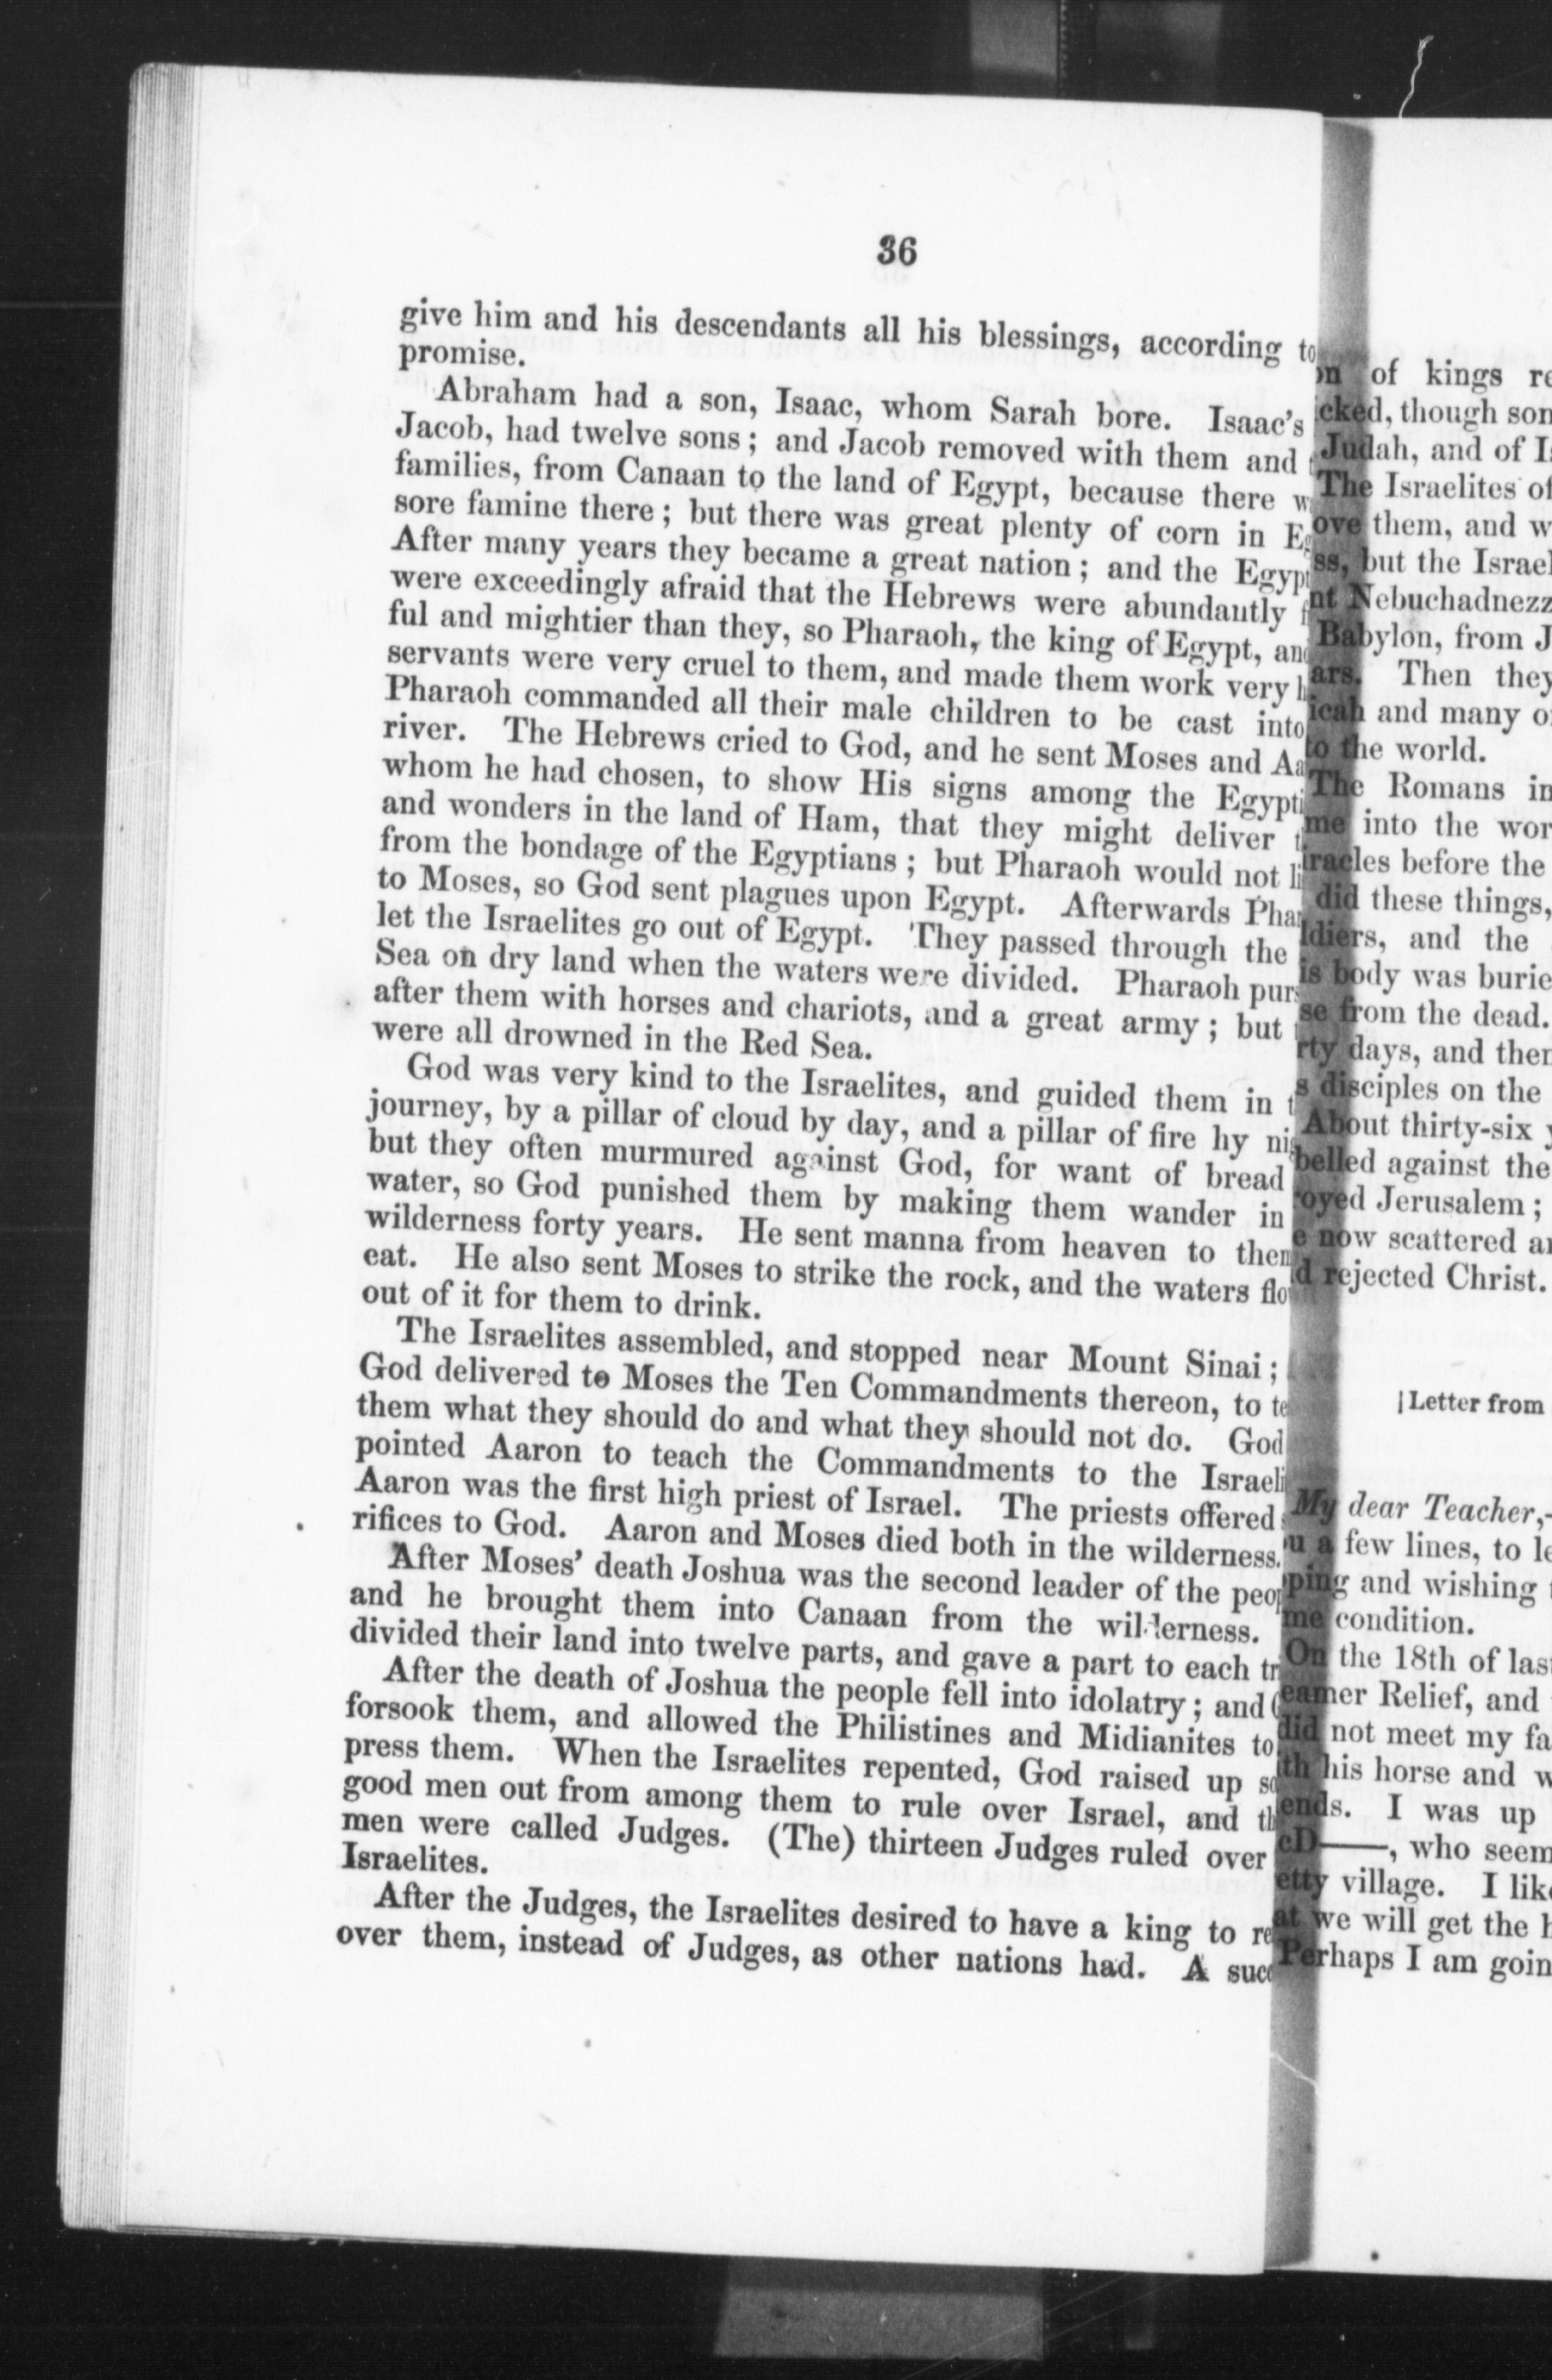 36
give him and his descendants all his blessings, according to
promise.
Abraham had a son, Isaac, whom Sarah bore. Isaac's
Jacob, had twelve sons; and Jacob removed with them and
families, from Canaan to the land of Egypt, because there
sore famine there; but there was great plenty of corn in
After many years they became a great nation; and the
were exceedingly afraid that the Hebrews were abundantly
ful and mightier than they, so Pharaoh, the king of Egypt,
servants were very cruel to them, and made them work very
Pharaoh commanded all their male children to be cast into
river. The Hebrews cried to God, and he sent Moses and
whom he had chosen, to show His signs among the
and wonders in the land of Ham, that they might deliver
from the bondage of the Egyptians; but Pharaoh would not
to Moses, so God sent plagues upon Egypt. Afterwards
let the Israelites go out of Egypt. They passed through the
Sea on dry land when the waters were divided. Pharaoh
after them with horses and chariots, and a great army; but
were all drowned in the Red Sea.
God was very kind to the Israelites, and guided them in
journey, by a pillar of cloud by day, and a pillar of fire hy
but they often murmured against God, for want of bread
water, so God punished them by making them wander in
wilderness forty years. He sent manna from heaven to
eat. He also sent Moses to strike the rock, and the waters
out of it for them to drink.
The Israelites assembled, and stopped near Mount Sinai;
God delivered to Moses the Ten Commandments thereon, to
them what they should do and what they should not do. God
pointed Aaron to teach the Commandments to the
Aaron was the first high priest of Israel. The priests offered
rifices to God. Aaron and Moses died both in the wilderness.
After Moses' death Joshua was the second leader of the
and he brought them into Canaan from the wilderness.
divided their land into twelve parts, and gave a part to each
After the death of Joshua the people fell into idolatry; and
forsook them, and allowed the Philistines and Midianites to
press them. When the Israelites repented, God raised up
good men out from among them to rule over Israel, and
men were called Judges. (The) thirteen Judges ruled over
Israelites.
After the Judges, the Israelites desired to have a king to
over them, instead of Judges, as other nations had. A
of kings
though
Judah, and of
The Israelites
them, and
but the
Babylon, from
Then they
and many
to the world.
The Romans
into the
before the
did these things,
and the
body was
from the dead.
days, and
disciples on the
About thirty-six
against the
Jerusalem;
now scattered
rejected Christ.
Letter from
My dear Teacher,
few lines, to
and wishing
condition.
On the 18th of
Relief, and
did not meet my
his horse and
I was up
who
village. I
we will get the
Perhaps I am